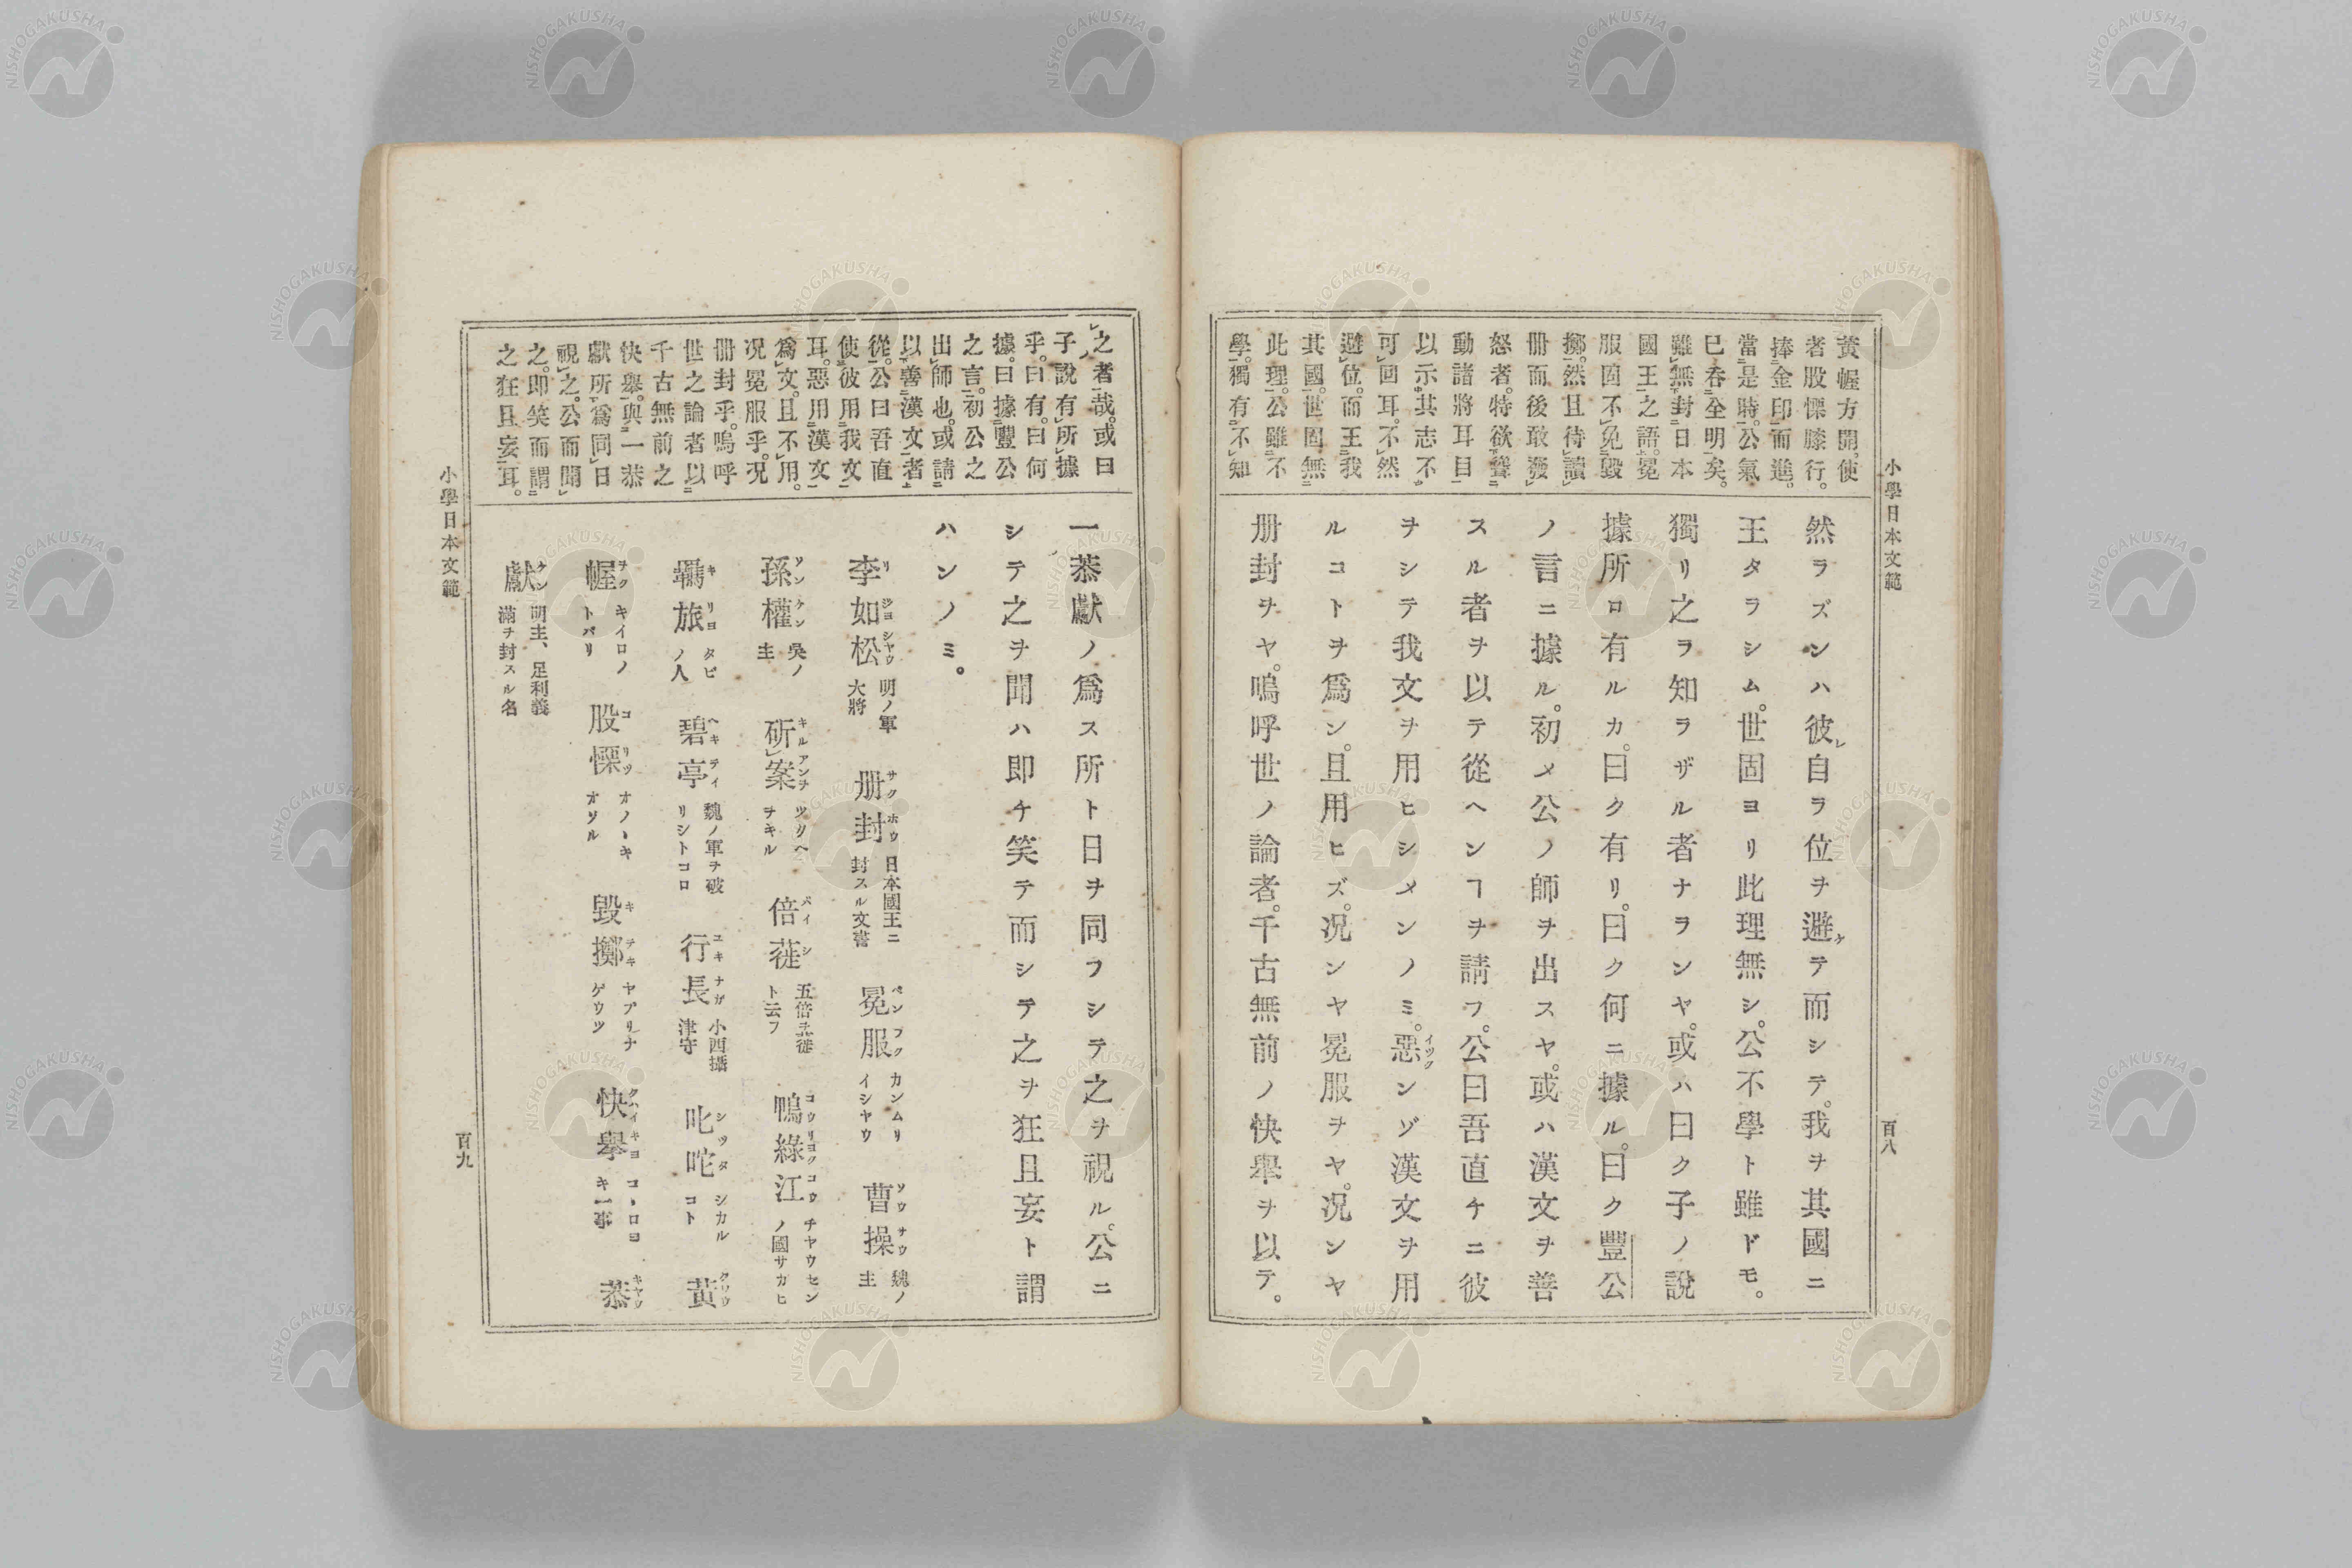 小學日本文範
百八
黃幄方開。使
者股慄膝行。
捧金印而進。
當是時。公氣
已呑全明矣。
雖無封日本
國王之語。冕
服固不免毀
擲。然且待讀
册而後敢發
怒者。特欲聳
動諸將耳目
以示其志不
可回耳。不然
避位。而王我
其國。世固無
此理。公雖不
學。獨有不知
然ラズンハ彼レ自ラ位ヲ避ケテ而シテ。我ヲ其國ニ
王タラシム。世固ヨリ此理無シ。公不學ト雖ドモ。
獨リ之ヲ知ラザル者ナランヤ。或ハ曰ク子ノ說
據所ロ有ルカ。曰ク有リ。曰ク何ニ據ル。曰ク豐公
ノ言ニ據ル。初メ公ノ師ヲ出スヤ。或ハ漢文ヲ善
スル者ヲ以テ從ヘンヿヲ請フ。公曰吾直チニ彼
ヲシテ我文ヲ用ヒシメンノミ。惡イヅクンゾ漢文ヲ用
ルコトヲ爲ン。且用ヒズ。況ンヤ冕服ヲヤ。況ンヤ
册封ヲヤ。嗚呼世ノ論者。千古無前ノ快擧ヲ以テ。
之者哉。或曰
子說有所據
乎。曰有。曰何
據。曰據豐公
之言。初公之
出師也。或請
以善漢文者
從。公曰吾直
使彼用我文
耳。惡用漢文
爲文。且不用。
況冕服乎。況
册封乎。嗚呼
世之論者以
千古無前之
快擧。與一恭
獻所爲同日
視之。公而聞
之。卽笑而謂
之狂且妄耳。
一恭獻ノ爲ス所ト日ヲ同フシテ之ヲ視ル。公ニ
シテ之ヲ聞ハ卽チ笑テ而シテ之ヲ狂且妄ト謂
ハンノミ。
李如松リジヨシヤウ 明ノ軍大將 册封サクホウ 日本國王ニ封スル文書 冕服ベンプク カンムリイシヤウ 曹操ソウサウ 魏ノ主
孫權ソンケン 吳ノ主 斫案キルアンヲ ツクヘヲキル 倍蓰バイシ 五倍ヲ蓰ト云フ 鴨綠江コウリヨクコウ チヤウセンノ國サカヒ
羈旅キリヨ タビノ人 碧亭ヘキテイ 魏ノ軍ヲ破リシトコロ 行長ユキナガ 小西攝津守 叱咤シツタ シカルコト 黃クワウ
幄ヲク キイロノトバリ 股慄コリツ オノヽキオソル 毀擲キテキ ヤブリナゲウツ 快擧クハイキヨ コヽロヨキ一事 恭キヤウ
獻ケン 明主、足利義滿ヲ封スル名
小學日本文範
百九